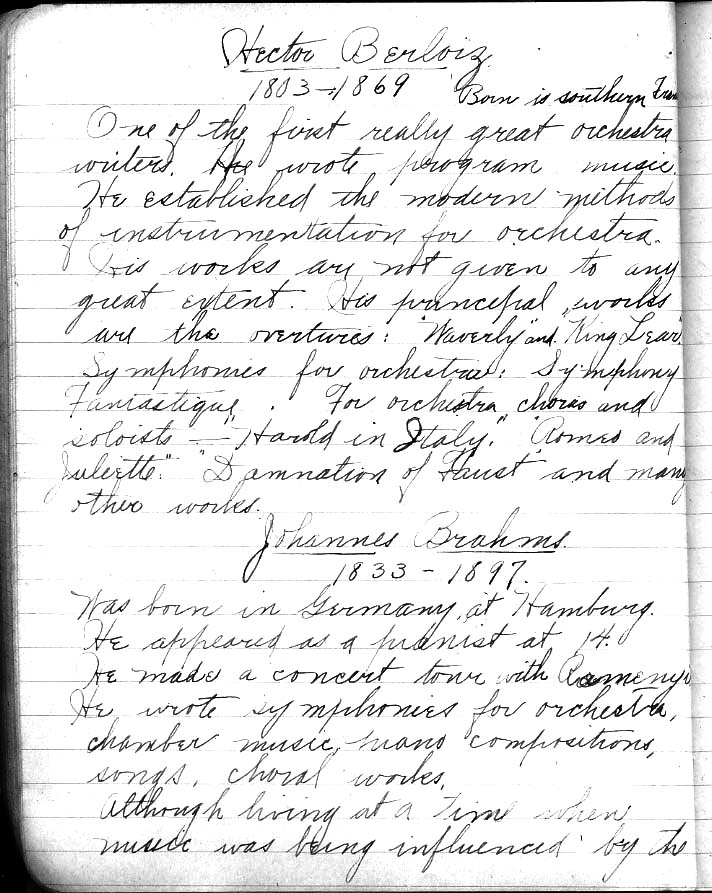 Hector Berloiz
1803-1869 Born is southern Fran
One of the first really great orchestra
writers. He wrote program music.
He established the modern methods
of instrumentation for orchestra.
His works ary not given to any
great extent. His principal works
are the overtures: "Waverly" and "King Lear".
Symphonies for orchestra: Symphony
Fantastique. For orchestra, choras and
soloists - "Harold in Italy." "Romeo and
Juliette." "Damnation of Faust" and many
other works.
Johannes Brahms.
1833-1897.
Was born in Germany, at Hamburg.
He appeared as a pianist at 14.
He made a concert tour with Remenyi
He wrote symphonies for orchestra,
chamber music, piano compositions,
songs, choral works.
Although living at a time when
music was being influenced by the